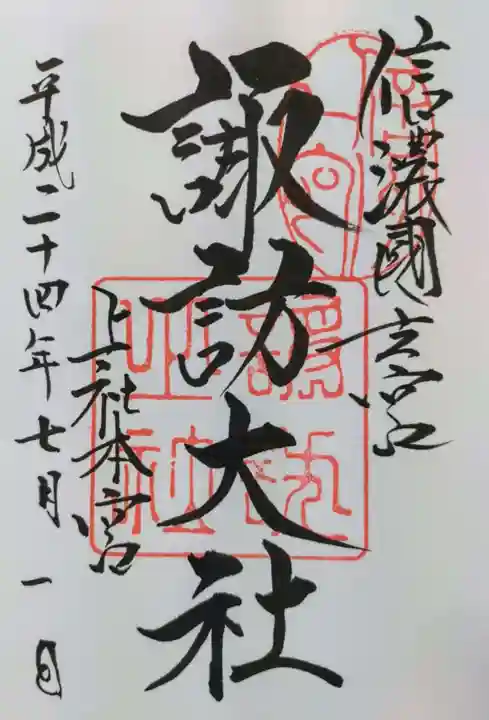 信濃國一之宮
諏訪大社
上社本宮
平成二十四年七月一日